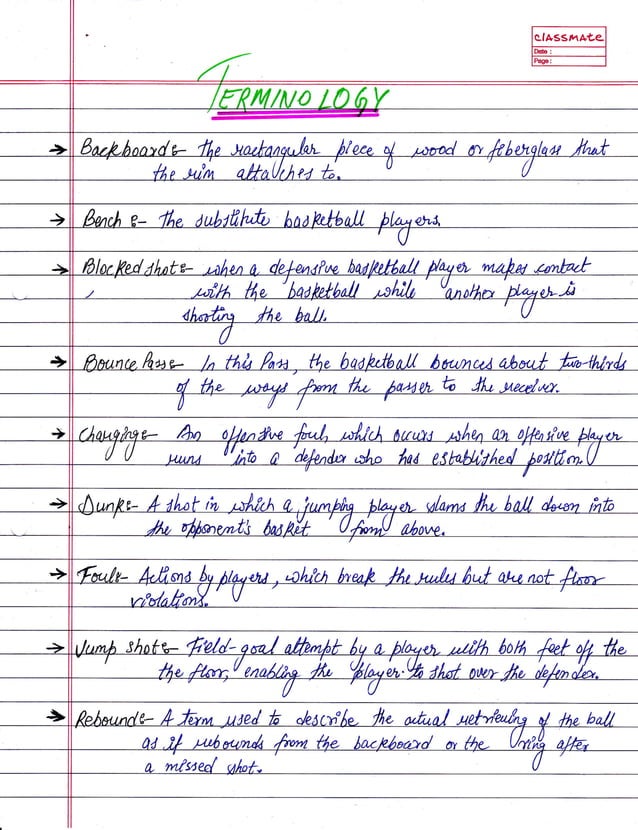 classmate
Date :
Page :
TERMINOLOGY
→ Backboard:- the ractangular piece of wood or fiberglass that
the rim attaches to.
→ Bench :- The substitute basketball players.
→ Blocked shot:- when a defensive basketball player makes contact
with the basketball while another player is
shooting the ball.
→ Bounce Pass:- In this Pass, the basketball bounces about two-thirds
of the ways from the passer to the receiver.
→ Charging:- An offensive foul, which occurs when an offensive player
runs into a defender who has established position.
→ Dunk:- A shot in which a jumping player slams the ball down into
the opponent's basket from above.
→ Foul:- Actions by players, which break the rules but are not floor
violations.
→ Jump shot:- Field-goal attempt by a player with both feet off the
the floor, enabling the player to shot over the defender.
→ Rebound:- A term used to describe the actual retrieving of the ball
as if rebounds from the backboard or the ring after
a missed shot.